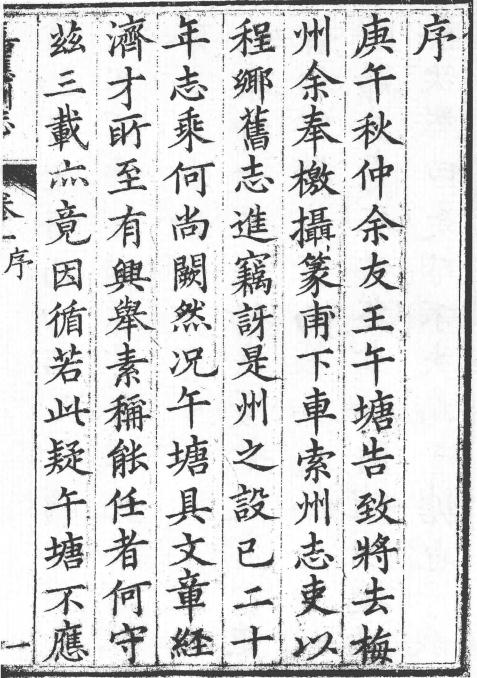 序
庚午秋仲余友王午塘告致將去梅
州余奉檄攝篆甫下車索州志吏以
程鄉舊志進竊訝是州之設已二十
年志乘何尚闕然况午塘具文章經
濟才所至有興舉素稱能任者何守
茲三載亦竟因循若此疑午塘不應
州志
卷一
序
一